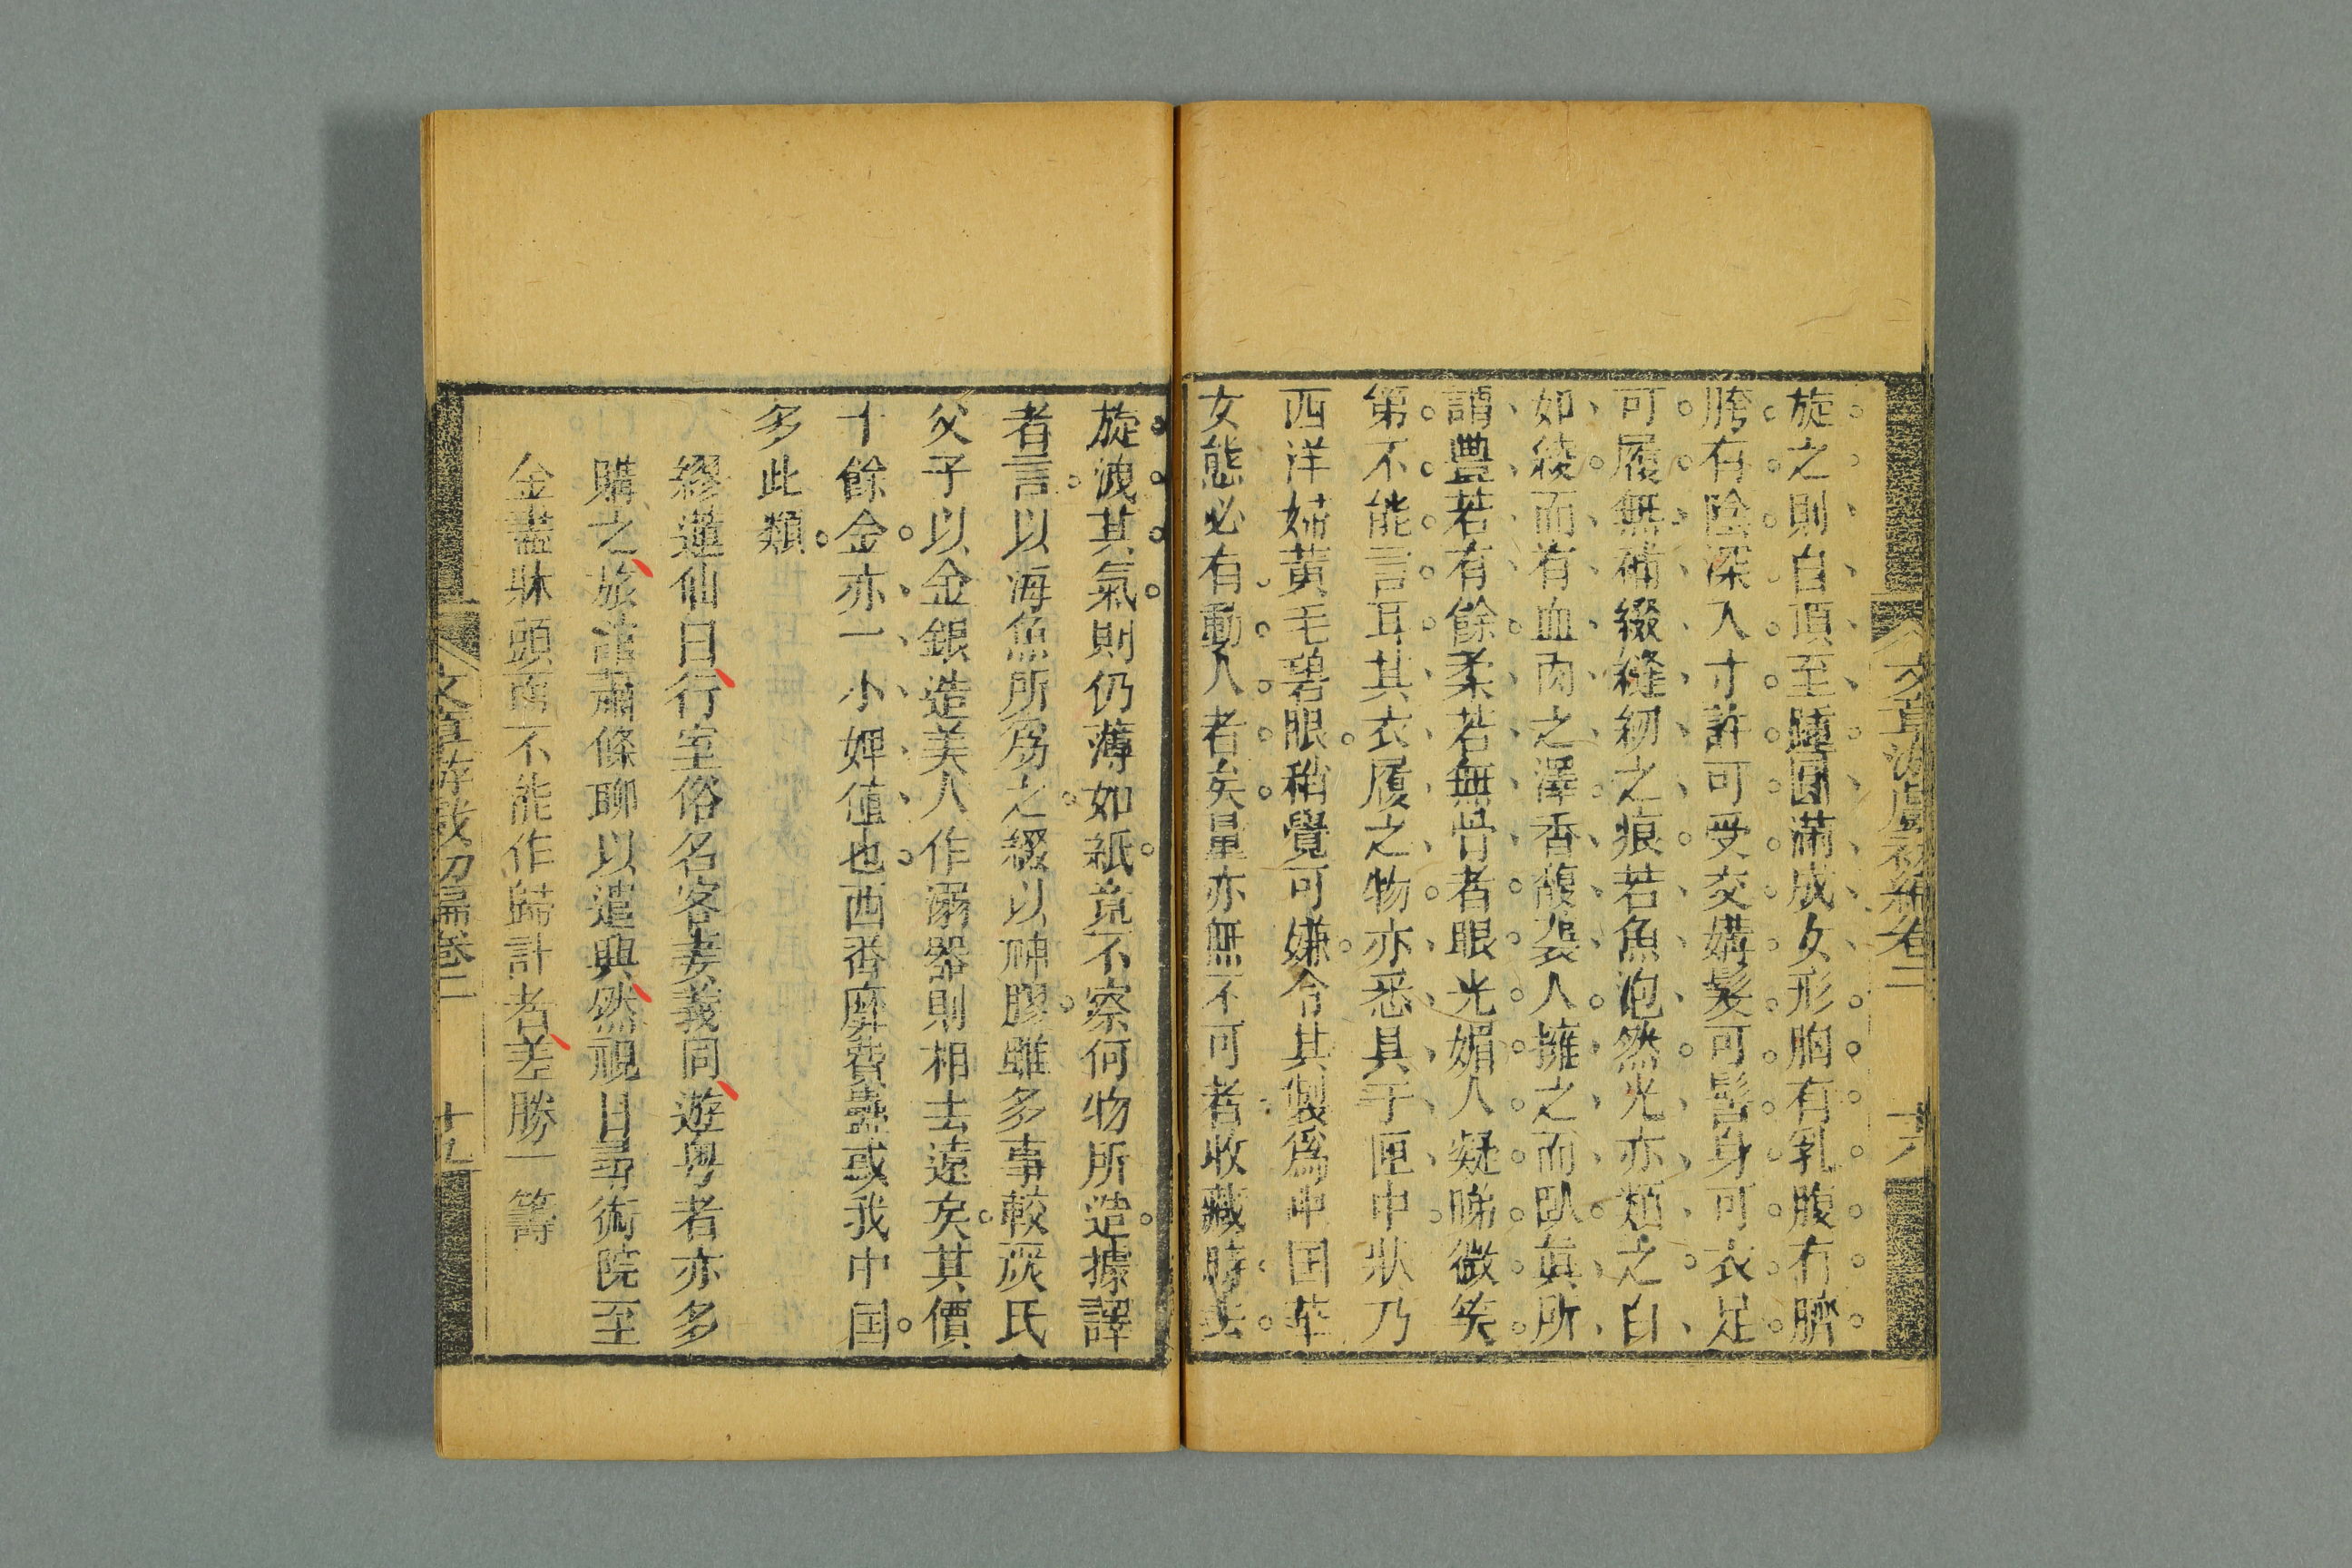 旋之則自頂至踵圓滿成女形胸有乳腹有臍
胯有陰深入寸許可受交媾髮可髻身可衣足
可履無補綴縫紉之痕若魚泡然光亦類之自
如綾而有血肉之澤香馥襲人擁之而臥眞所
謂豊若有餘柔若無骨者眼光媚人疑睇微笑
第不能言耳其衣履之物亦悉具于匣中狀乃
西洋婦黃毛碧眼稍覺可嫌令其製爲中国
女態必有動人者矣量亦無不可者收藏時
旋洩其氣則仍薄如紙竟不察何物所造據譯
者言以海魚所為之綴以神膠雖多事較嚴氏
父子以金銀造美人作溺器則相去遠矣其價
十餘金亦一小婢值也西番靡費蠱或我中国
多此類
繆蓮仙曰行室俗名客妻義同遊粤者亦多
購之旅邸蕭條聊以遣興然視日尋術院至
金盡牀頭而不能作歸計者差勝一籌
文章游戲初編卷二
十六
文章游戲初編卷二
十五